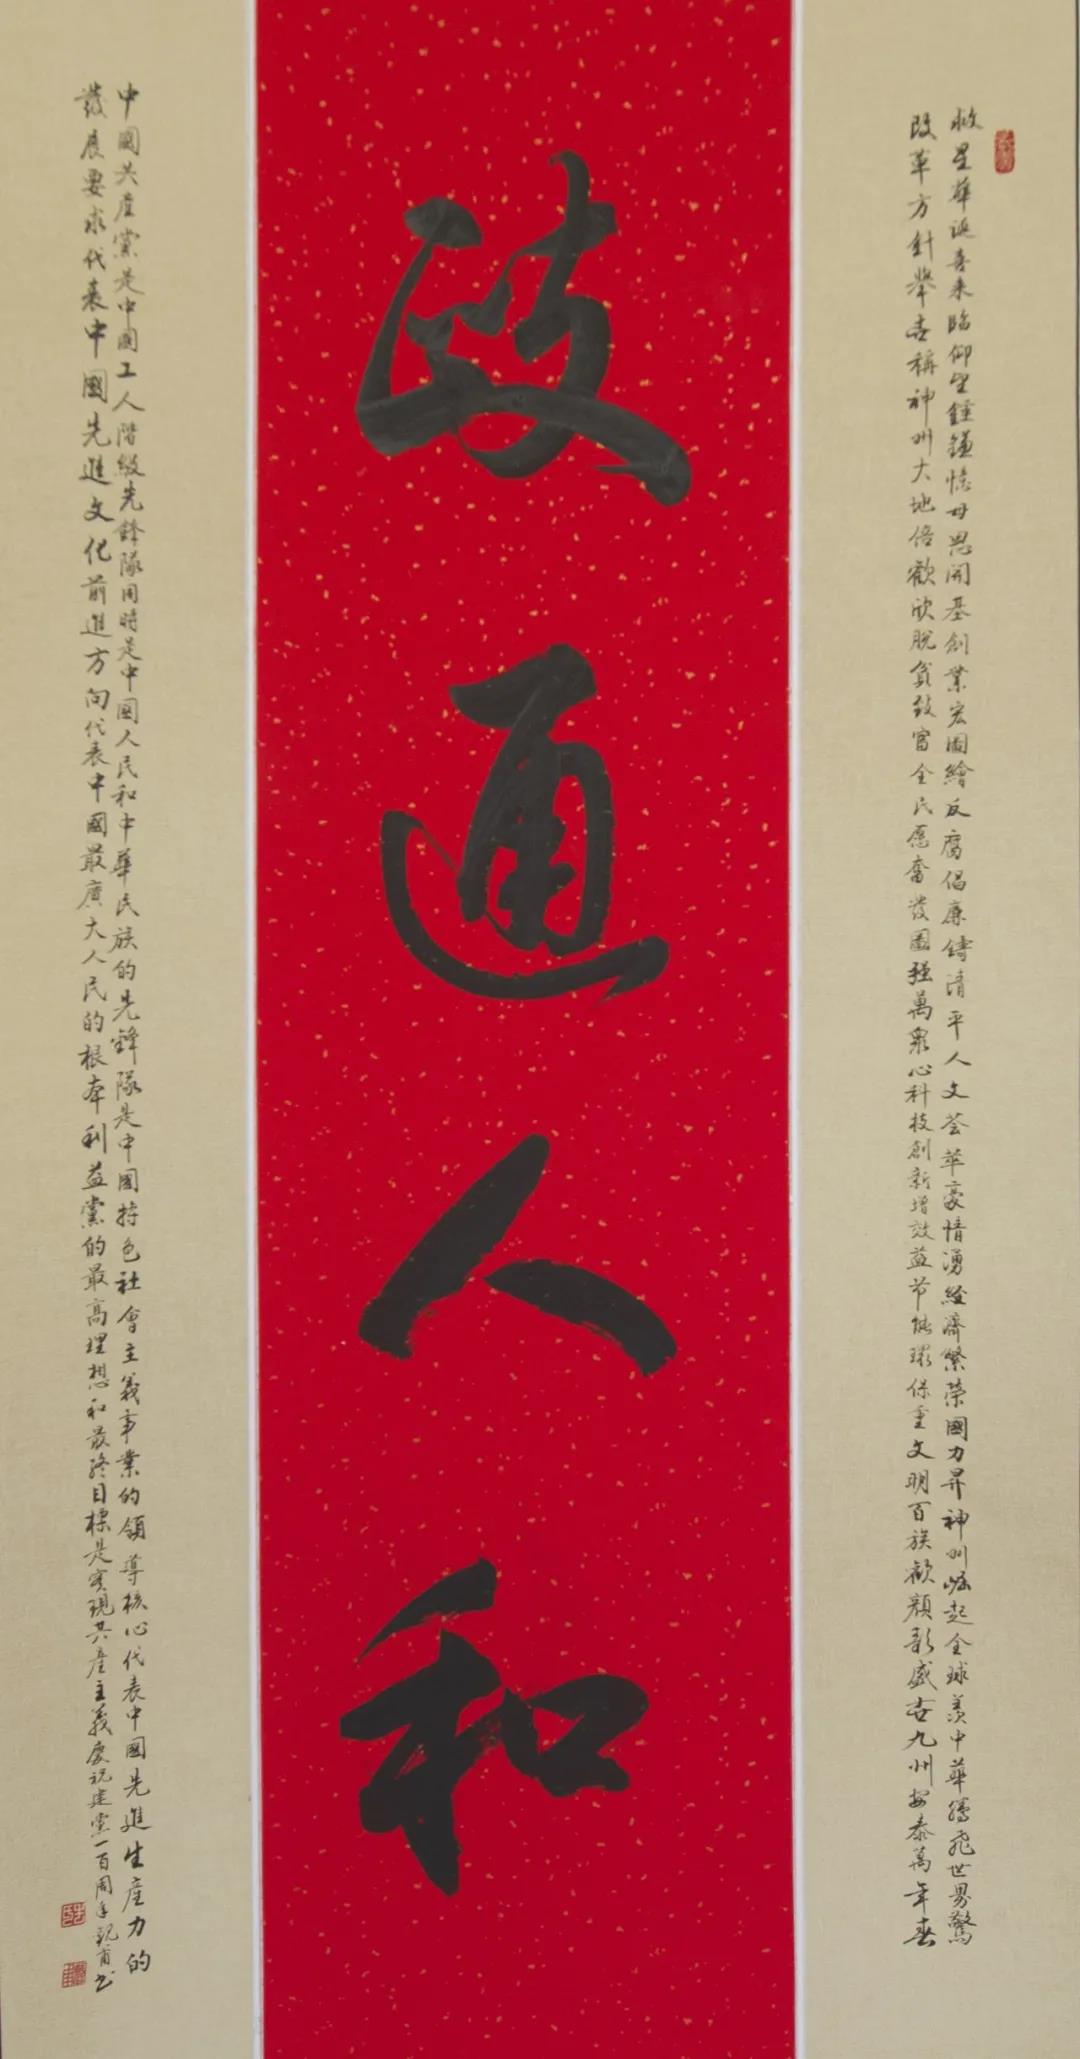 救星華诞喜来臨仰望錘鐮憶母恩開基創業宏圖繪反腐倡廉鑄清平人文荟萃豪情湧經濟繁荣國力昇神州崛起全球羨中華騰飛世界驚
改革方針舉世稱神州大地倍歡欣脱貧致富全民愿奮發圖强萬衆心科技創新增效益节能環保重文明百族歡顏彰盛世九州安泰萬年春
政通人和
中國共産黨是中國工人階級先鋒隊同時是中國人民和中華民族的先鋒隊是中國特色社會主義事業的領導核心代表中國先進生産力的
發展要求代表中國先進文化前進方向代表中國最廣大人民的根本利益黨的最高理想和最終目標是實現共産主義慶祝建黨一百周年书